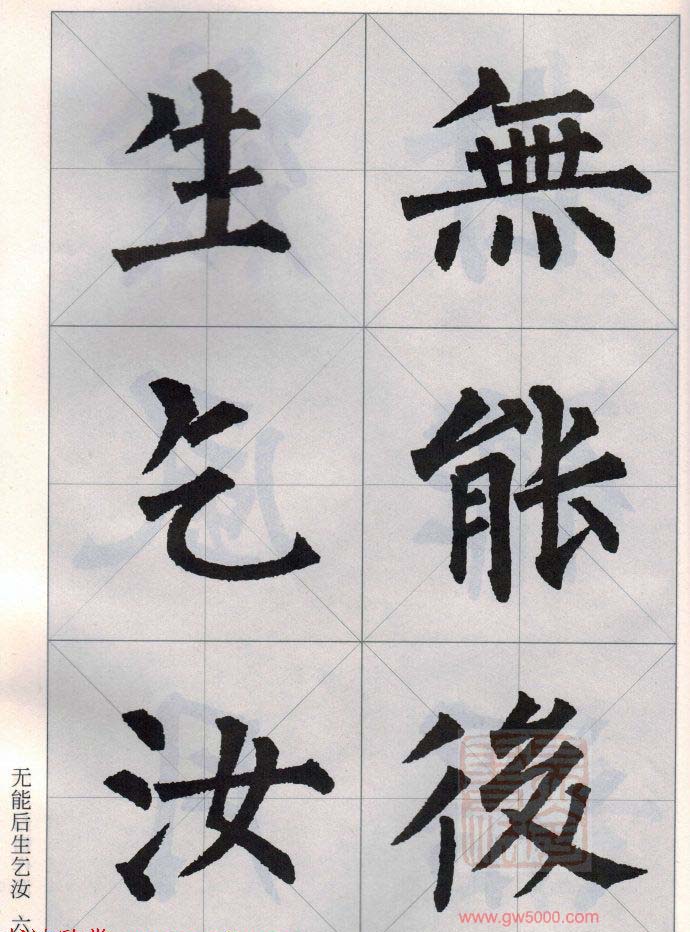 無能後
生乞汝
无能后生乞汝 六
www.gw5000.com